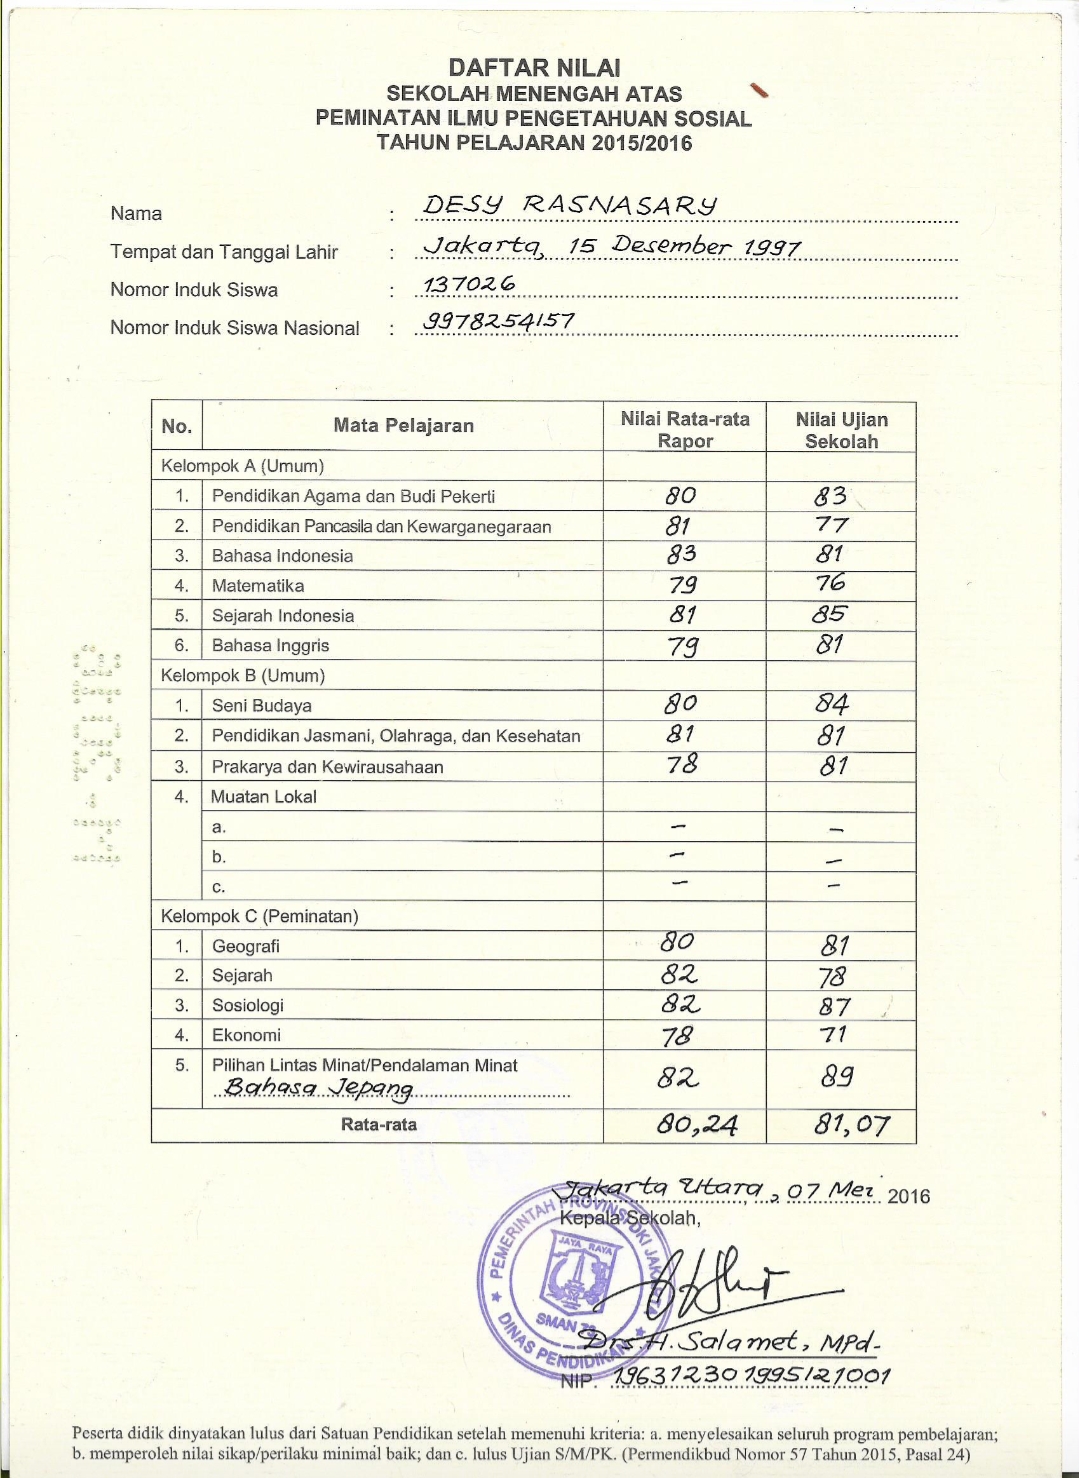 DAFTAR NILAI
SEKOLAH MENENGAH ATAS
PEMINATAN ILMU PENGETAHUAN SOSIAL
TAHUN PELAJARAN 2015/2016
Nama : DESY RASNASARY
Tempat dan Tanggal Lahir : Jakarta, 15 Desember 1997
Nomor Induk Siswa : 137026
Nomor Induk Siswa Nasional : 9978254157
No. Mata Pelajaran Nilai Rata-rata Rapor Nilai Ujian Sekolah
Kelompok A (Umum)
1. Pendidikan Agama dan Budi Pekerti 80 83
2. Pendidikan Pancasila dan Kewarganegaraan 81 77
3. Bahasa Indonesia 83 81
4. Matematika 79 76
5. Sejarah Indonesia 81 85
6. Bahasa Inggris 79 81
Kelompok B (Umum)
1. Seni Budaya 80 84
2. Pendidikan Jasmani, Olahraga, dan Kesehatan 81 81
3. Prakarya dan Kewirausahaan 78 81
4. Muatan Lokal
a. – –
b. – –
c. – –
Kelompok C (Peminatan)
1. Geografi 80 81
2. Sejarah 82 78
3. Sosiologi 82 87
4. Ekonomi 78 71
5. Pilihan Lintas Minat/Pendalaman Minat
Bahasa Jepang 82 89
Rata-rata 80,24 81,07
Jakarta Utara, 07 Mei 2016
Kepala Sekolah,
PEMERINTAH PROVINSI DKI JAKARTA
JAYA RAYA
SMAN
DINAS PENDIDIKAN
Drs. H. Salamet, MPd.
NIP. 196312301995121001
Peserta didik dinyatakan lulus dari Satuan Pendidikan setelah memenuhi kriteria: a. menyelesaikan seluruh program pembelajaran;
b. memperoleh nilai sikap/perilaku minimal baik; dan c. lulus Ujian S/M/PK. (Permendikbud Nomor 57 Tahun 2015, Pasal 24)